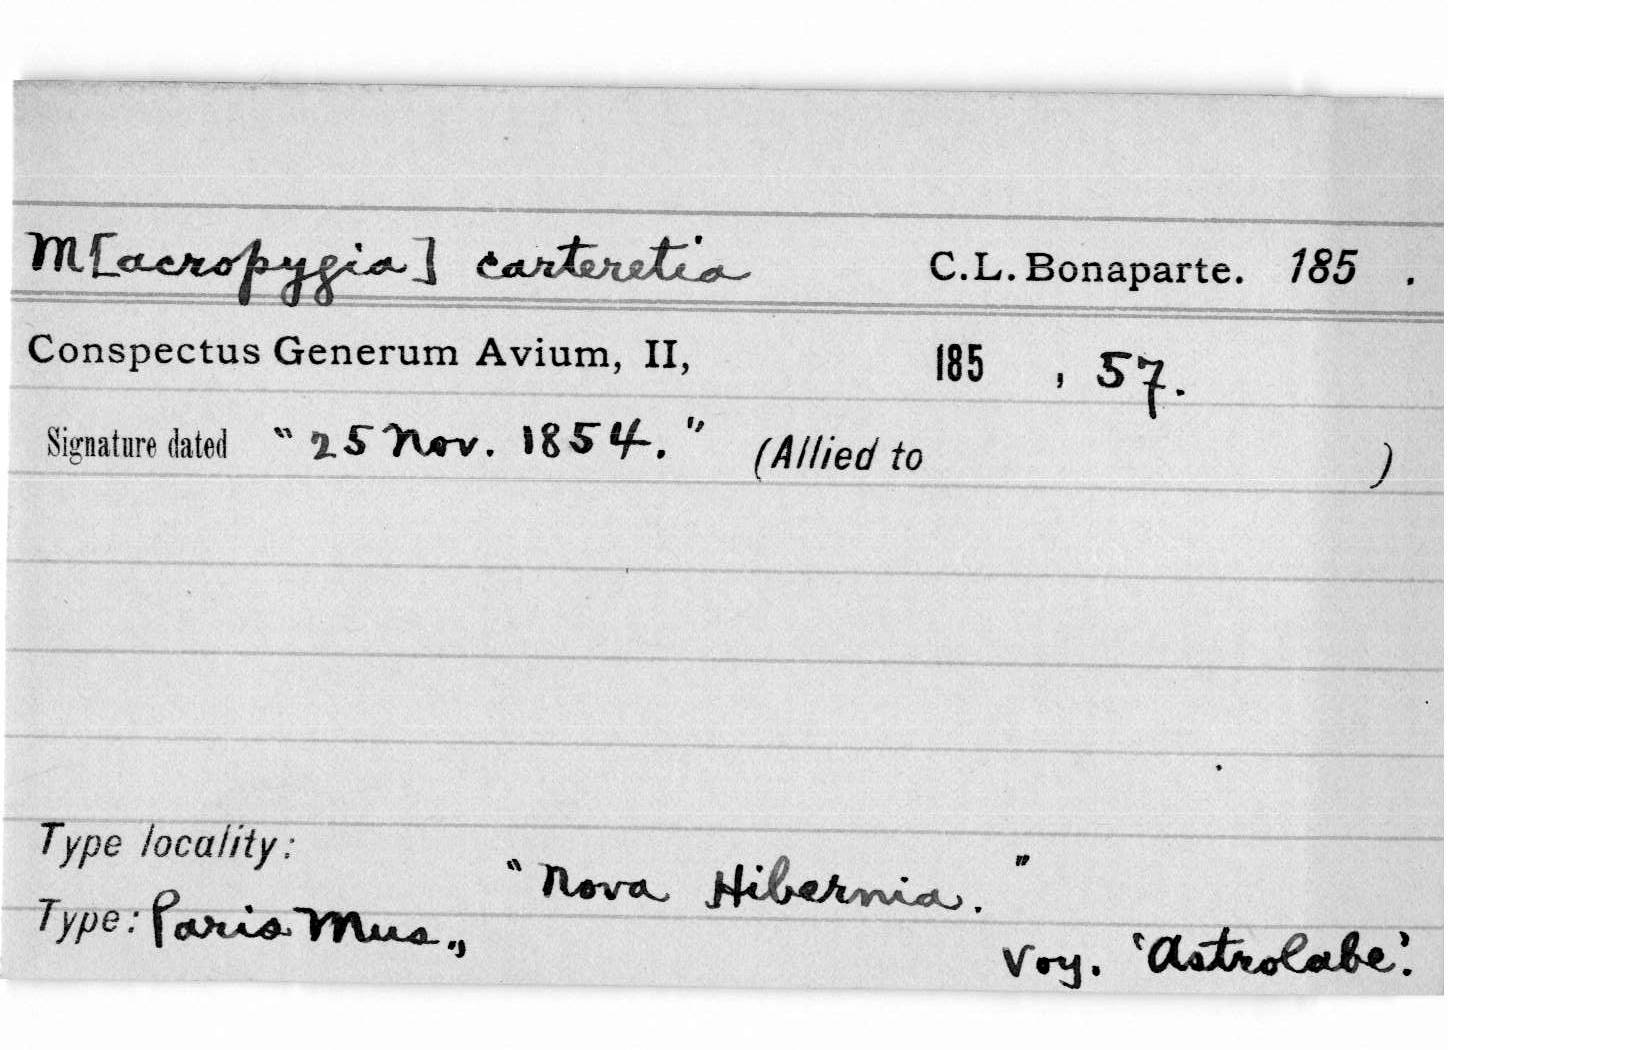 M[acropygia] carteretia C.L. Bonaparte. 185 .
Conspectus Generum Avium, II, 185 , 57.
Signature dated "25 Nov. 1854." (Allied to )
Type locality: "Nova Hibernia."
Type: Paris Mus., Voy. 'Astrolabe'.